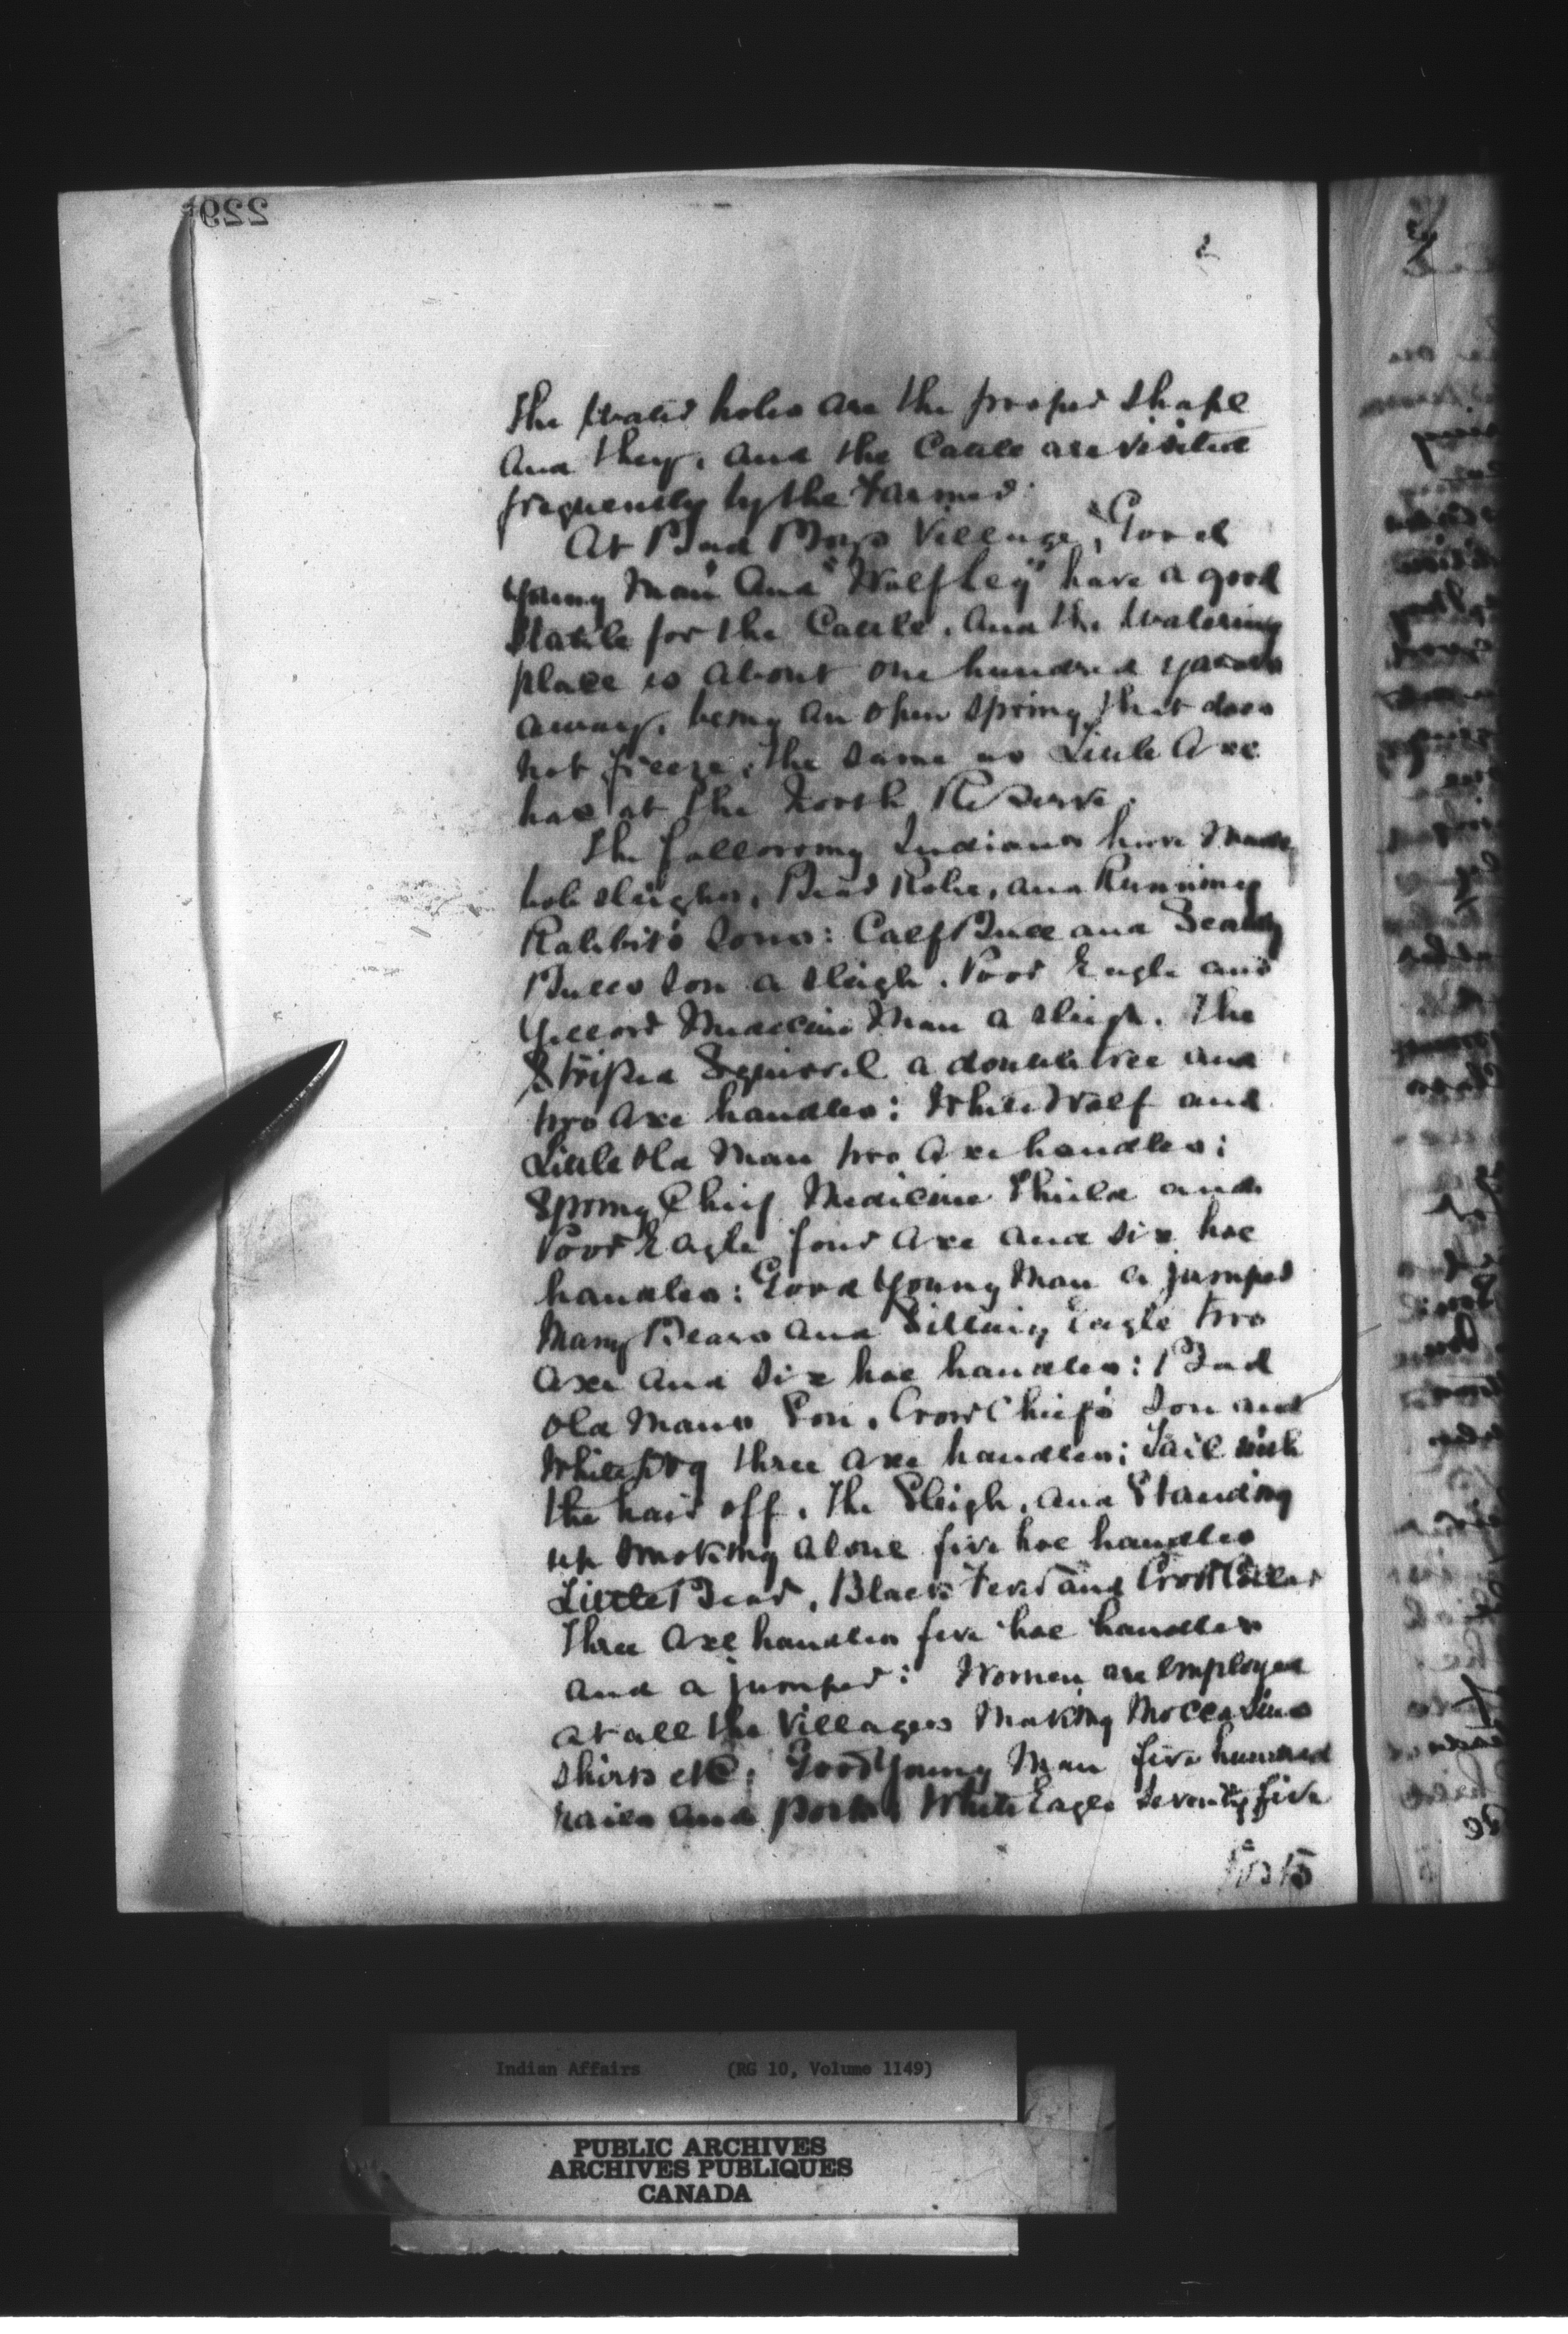 229
2
The water holes are the proper shape
and they, and the Cattle are visited
frequently by the Farmer.
At Bad Boys Village, "Good
Young Man" and "Wolf Leg" have a good
Stable for the Cattle, and the watering
place is about one hundred yards
away, being an open spring that does
not freeze, the same as Little Axe
has at the North Reserve.
The following Indians have made
bob sleighs, Bear Robe, and Running
Rabbit's Sons: Calf Bull and
Bulls Son a sleigh. Poor Eagle and
Yellow Medicine Man a sleigh. The
Striped Squirrel a doubletree and
two axe handles: White Wolf and
Little Old Man two axe handles:
Spring Chief Medicine Shield and
Poor Eagle four axe and six hoe
handles: Good Young Man a jumper
Many Bears and Sitting Eagle two
axe and six hoe handles: Bad
Old Mans Son, Crow Chief's Son and
White Dog three axe handles: Tail with
the hair off, The Sleigh, and Standing
up Smoking alone five hoe handles
Little Bear, Black and Crow Collar
Three axe handles five hoe handles
and a jumper: Women are employed
at all the Villages making Moccasins
shirts etc, Good Young Man five hundred
rails and posts, White Eagle seventy five
Posts
Indian Affairs (RG 10, Volume 1149)
PUBLIC ARCHIVES
ARCHIVES PUBLIQUES
CANADA